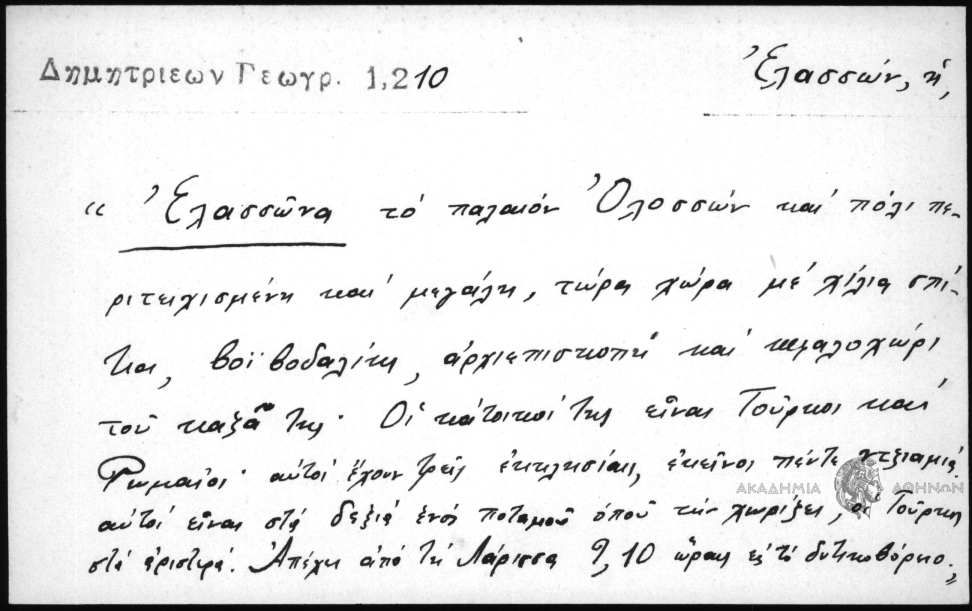 Δημητριεων Γεωγρ. 1,210
Ἐλασσών, ἡ,
« Ἐλασσῶνα τὸ παλαιὸν Ὀλοσσὼν καὶ πόλι πε-
ριτειχισμένη καὶ μεγάλη, τώρα χώρα μὲ χίλια σπί-
τια, βοϊβοδαλίκι, ἀρχιεπισκοπὴ καὶ κεφαλοχώρι
τοῦ καζᾶ της· Οἱ κάτοικοί της εἶναι Τοῦρκοι καὶ
Ρωμαῖοι· αὐτοὶ ἔχουν τρεῖς ἐκκλησίαις, ἐκεῖνοι πέντε ντζιαμιά,
αὐτοὶ εἶναι στὰ δεξιὰ ἑνὸς ποταμοῦ ὁποῦ τὴν χωρίζει, οἱ Τοῦρκοι
στὰ ἀριστερά. Ἀπέχει ἀπὸ τὴ Λάρισσα 9, 10 ὥραις εἰς τὸ δυτικοβόρειο. »
ΑΚΑΔΗΜΙΑ ΑΘΗΝΩΝ